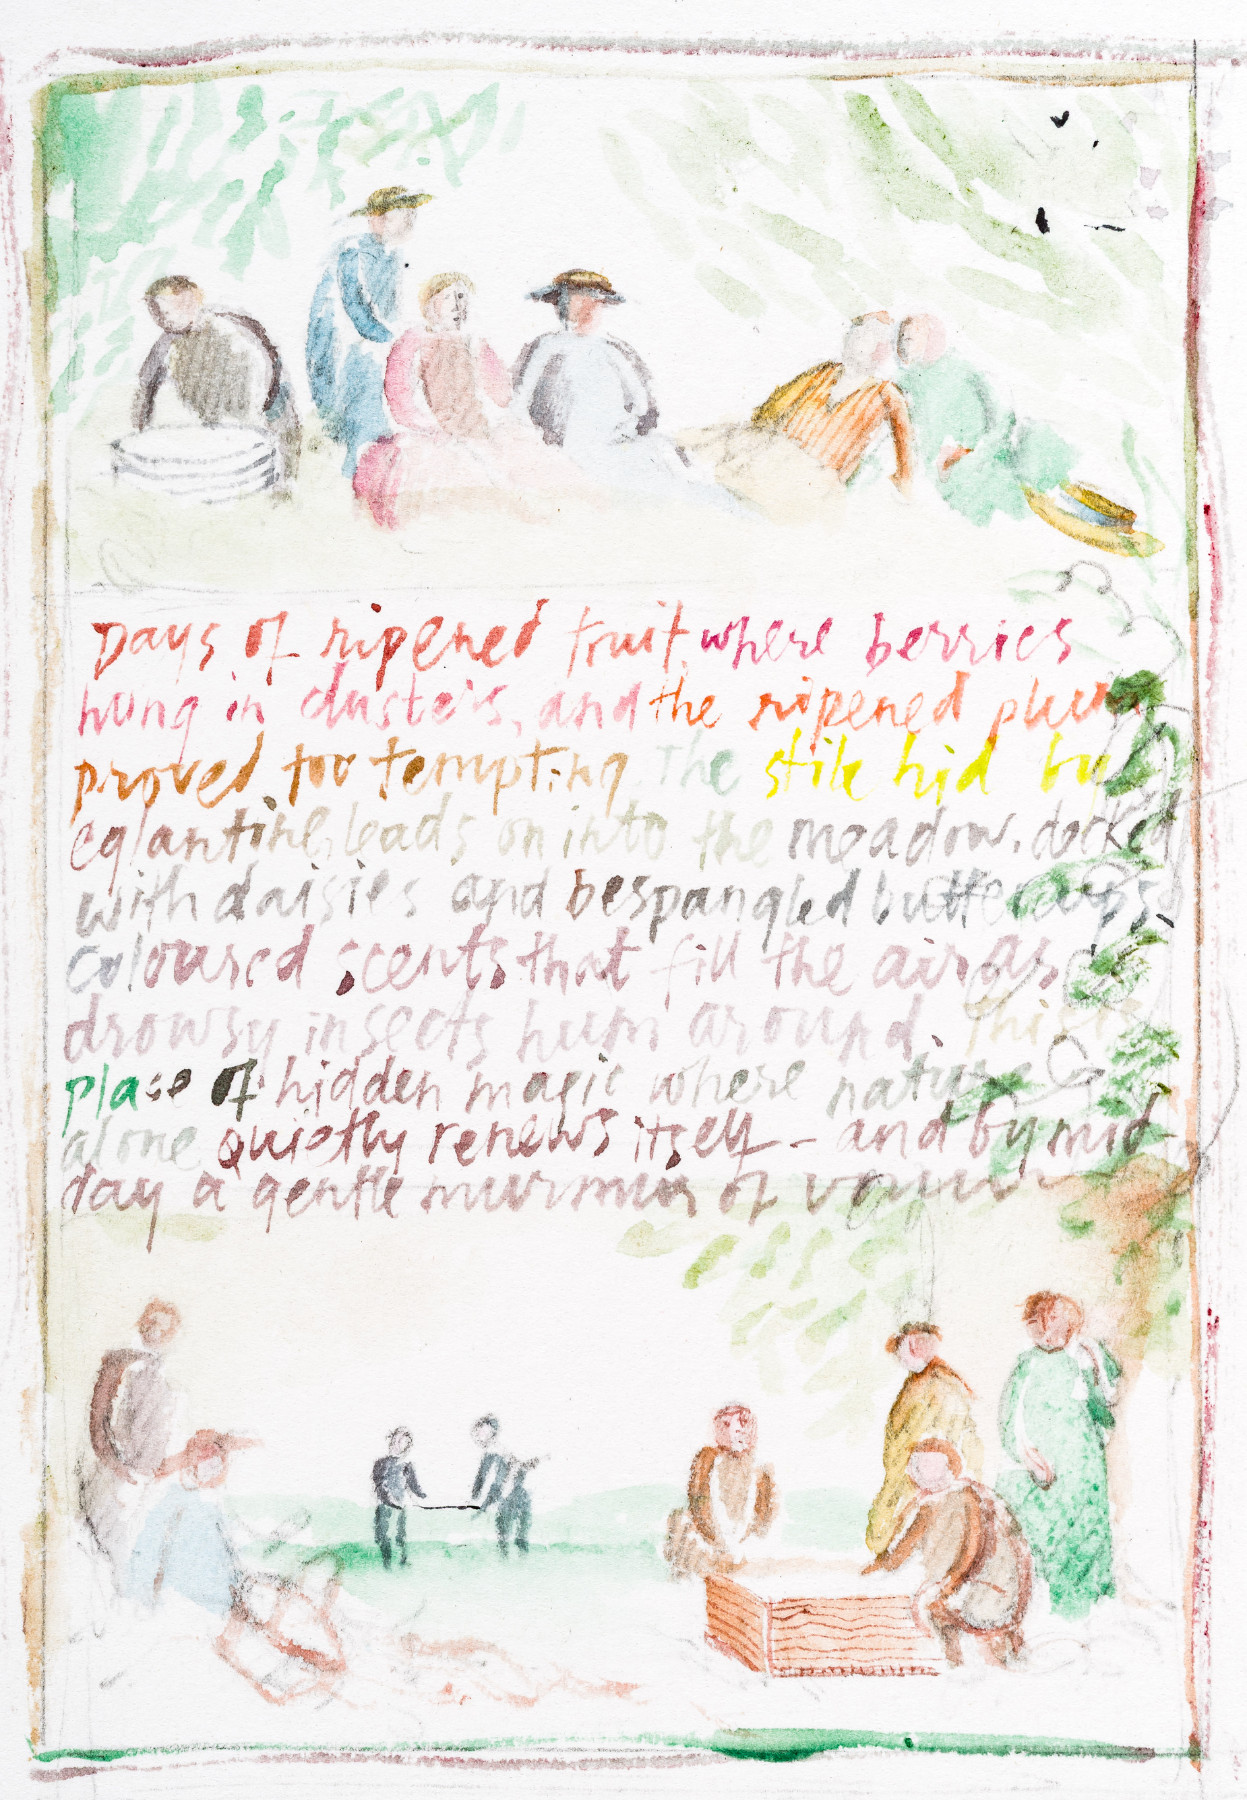 Days of ripened fruit, where berries
hung in clusters, and the ripened plum
proved too tempting the stile hid by
eglantine, leads on into the meadow, decked
with daisies and bespangled buttercups.
Coloured scents that fill the air as
drowsy insects hum around. This
place of hidden magic where nature
alone quietly renews itself - and by mid-
day a gentle murmur of